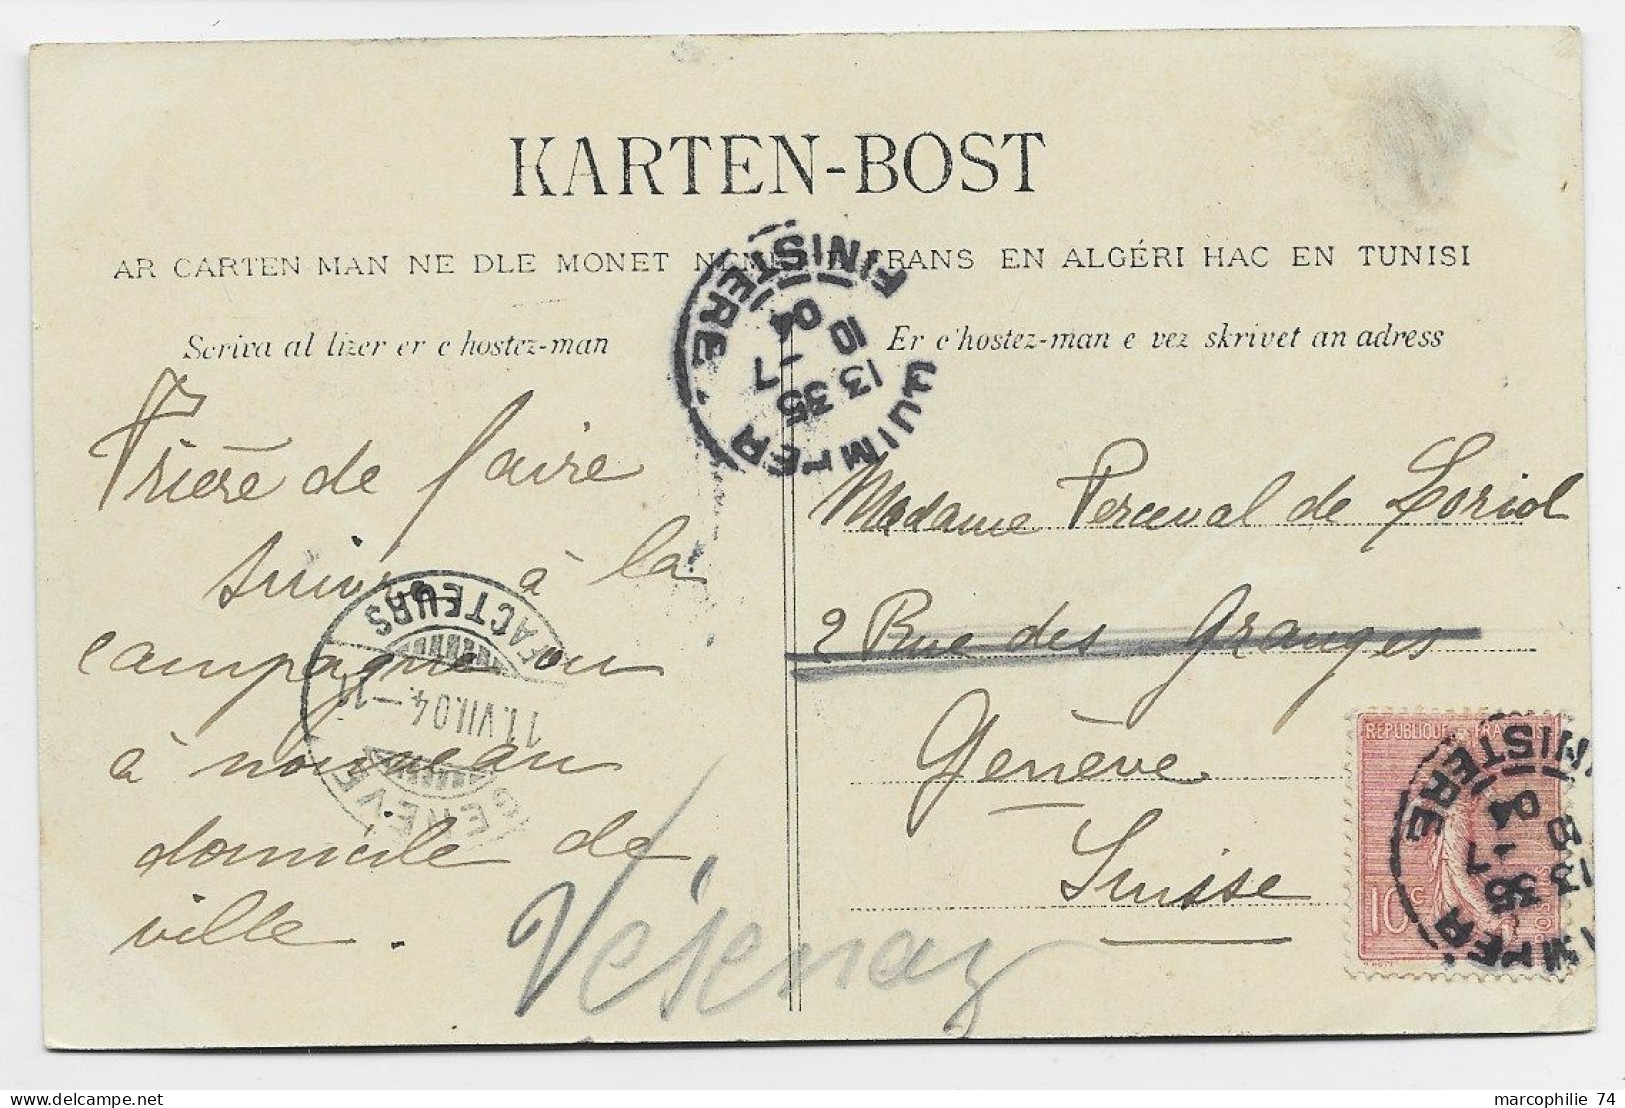 KARTEN-BOST
AR CARTEN MAN NE DLE MONET FRANS EN ALGÉRI HAC EN TUNISI
Scriva al lizer er c'hostez-man
Er c'hostez-man e vez skrivet an adress
QUIMPER
FINISTERE
13 35
10 -7
04
Prière de faire
suivre à la
campagne ou
à nouveau
domicile de
ville.
Madame Perceval de Loriol
2 Rue des Granges
Genève
Suisse
Vésenaz
GENEVE
11.VII.04.-11
FACTEURS
REPUBLIQUE FRANÇAISE
10 c
FINISTERE
13 35
-7
04
marcophilie 74